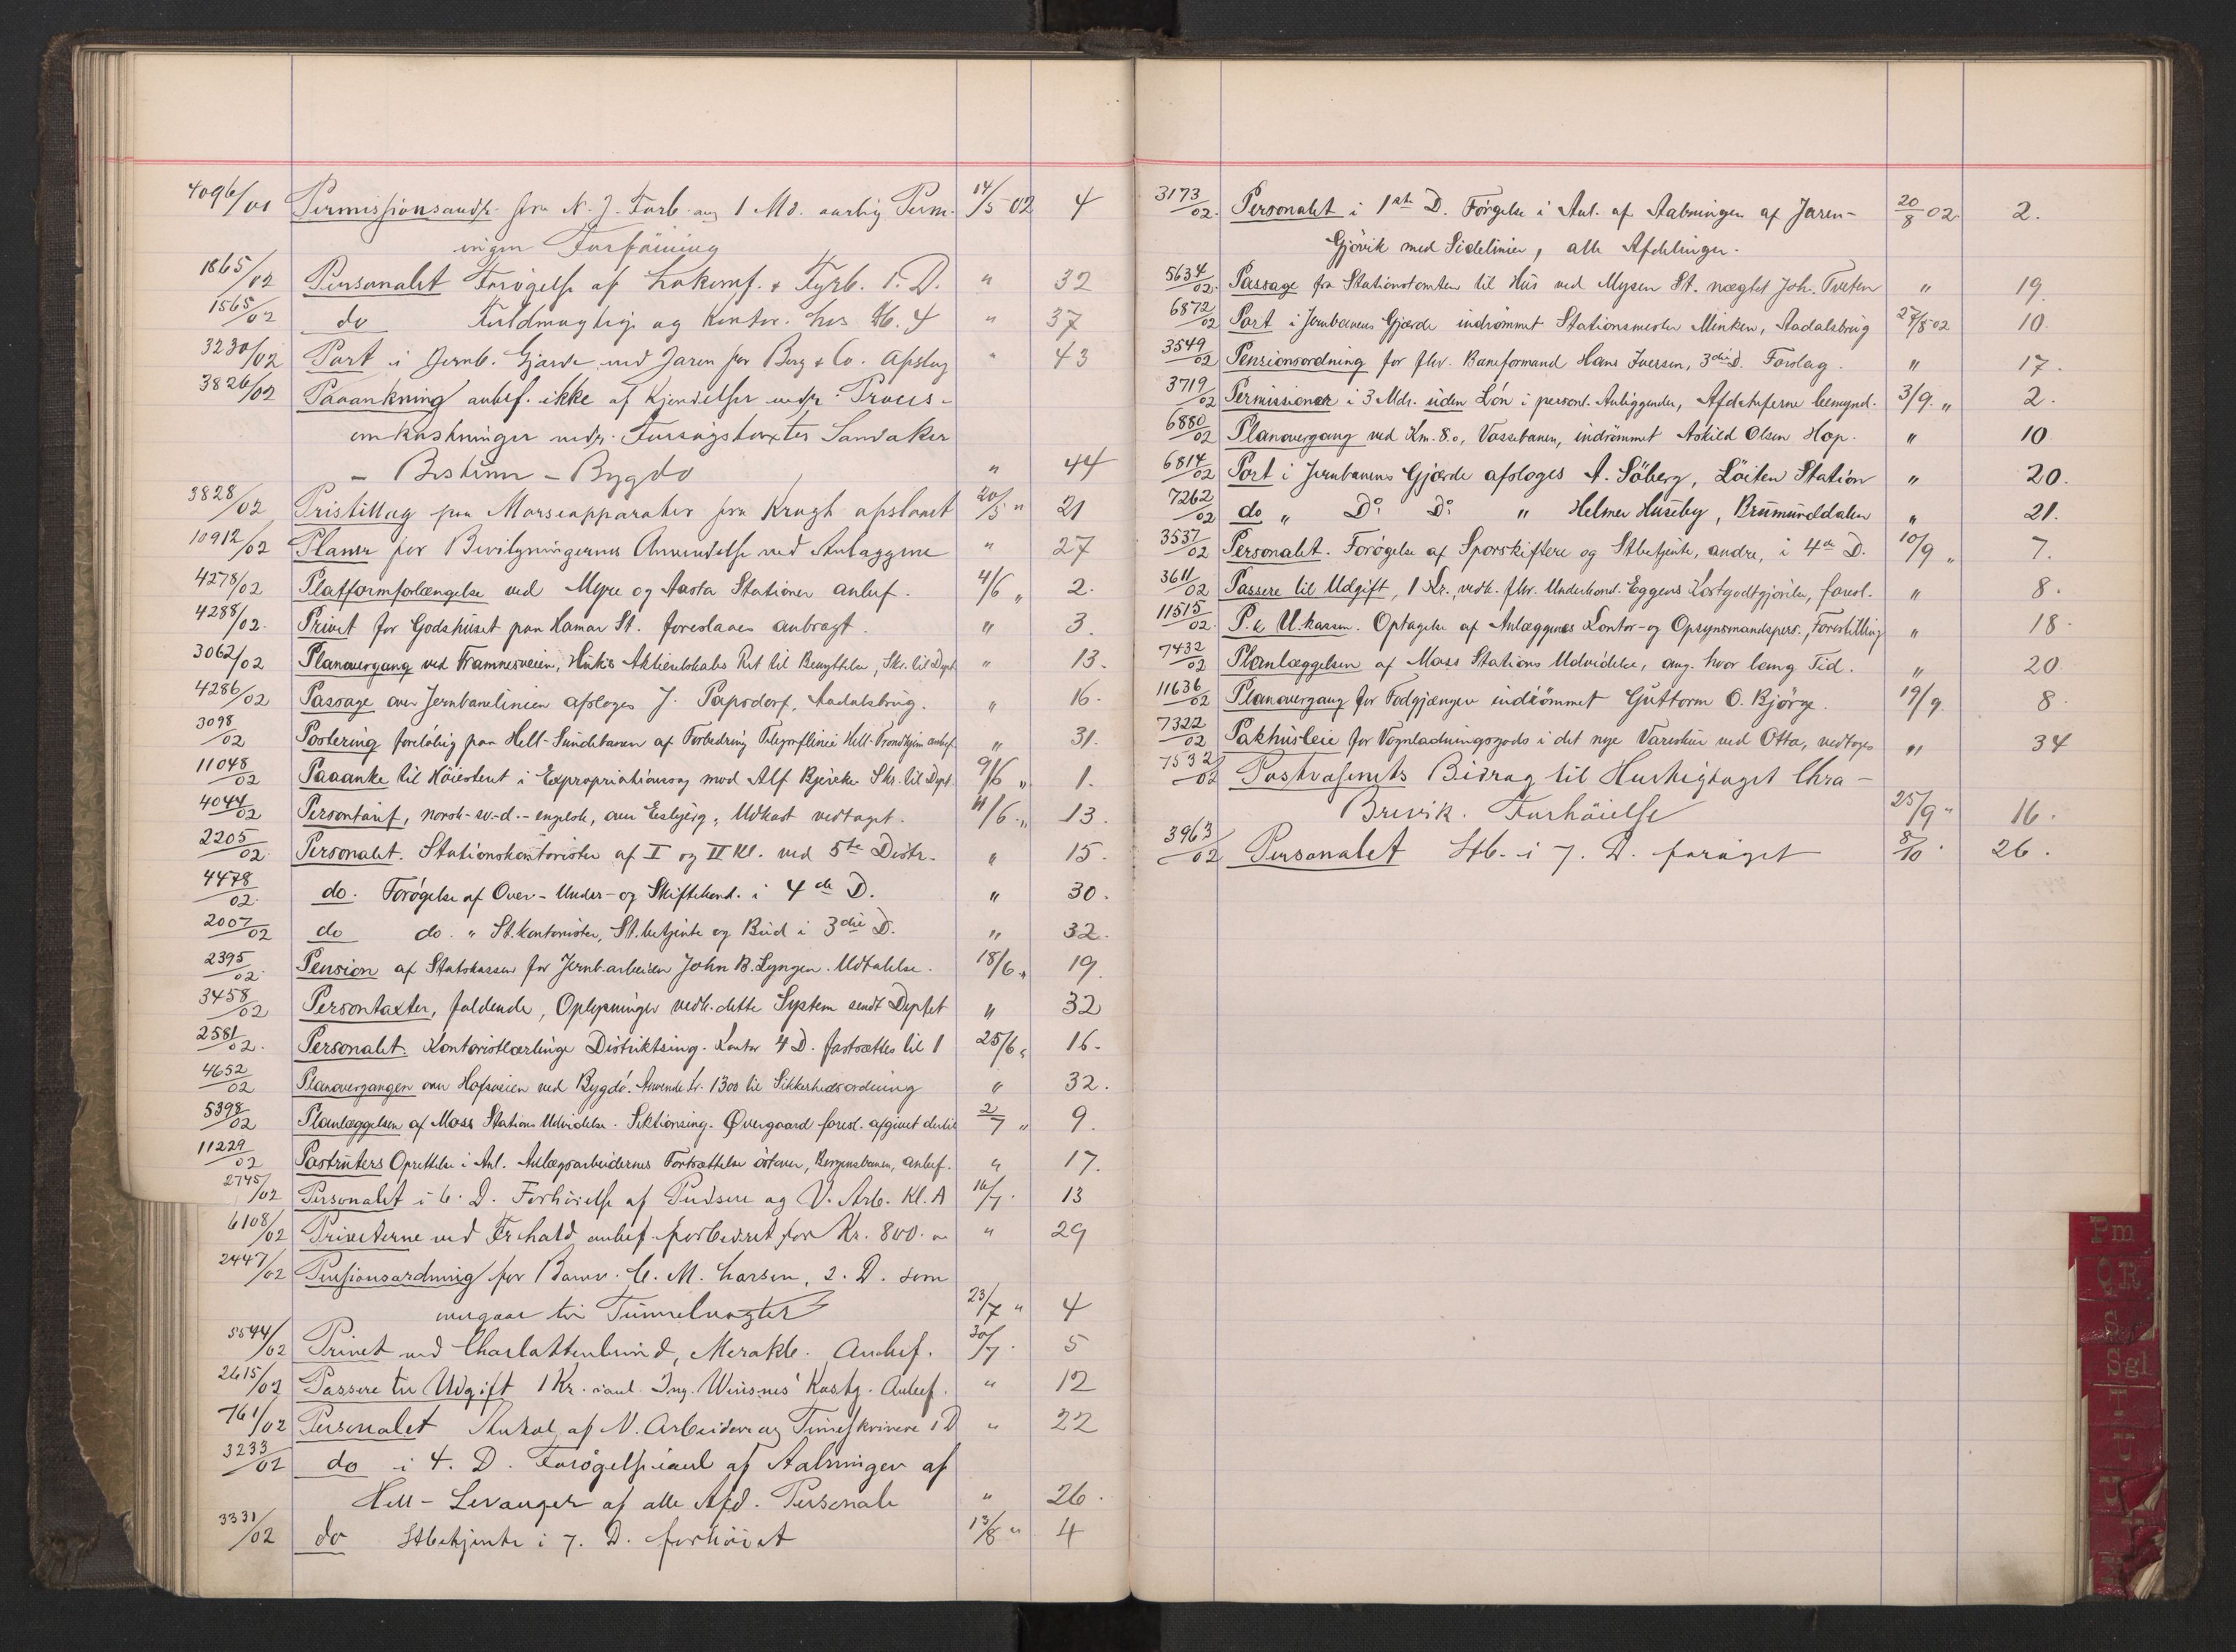 4096/01 Permissionsandr. fra N. J. Forb. ang 1 Md. aarlig Perm. 14/5 02 4
ingen Forføining
1865/02 Personalet Forøgelse af Lokomf. & Fyrb. 1. D. " 32
1565/02 do Fuldmægtig og Kontor. hos 4 " 37
3230/02 Port i Jernb. Gjærde ved Jaren for Berg & Co. Afslag " 43
3826/02 Paaankning anbef. ikke af Kjendelser vedr. Proces-
omkostninger vedr. Forsøgstaxter Sandaker
- Bestum - Bygdø " 44
3828/02 Pristillæg paa Morseapparater fra Krogh afslaaet 20/5 " 21
10912/02 Planer for Bevilgningernes Anvendelse ved Anlæggene " 27
4278/02 Platformforlængelse ved Myre og Aasta Stationer anbef. 4/6 " 2.
4288/02. Privet for Godshuset paa Hamar St. foreslaaes anbragt. " 3.
3062/02 Planovergang ved Framnesveien, Aktieselskabs Ret til Benyttelse, Skr. til Dept. " 13.
4286/02 Passage over Jernbanelinien afslages J. Papsdorf, Aadalsbrug. " 16.
3098/02 Postering foreløbig paa Hell-Sundebanen af Forbedring Telegraflinie Hell-Trondhjem anbef. " 31.
11048/02 Paaanke til Höiesteret i Expropriationssag mod Alf Bjercke Skr. til Dept. 9/6 " 1.
4044/02 Persontarif, norsk-sv.-d.-engelsk, over Esbjerg, Udkast vedtaget. 11/6 " 13.
2205/02. Personalet. Stationskontorister af I og II Kl. ved 5te Distr. " 15.
4478/02. do. Forøgelse af Over- Under- og Skiftekond. i 4de D. " 30.
2007/02 do do. " St.kontorister, St.betjente og Bud i 3die D. " 32.
2395/02. Pension af Statskassen for Jernb.arbeider John B. Lyngen. Udtalelse. 18/6 " 19.
3458/02 Persontaxter, faldende, Oplysninger vedk. dette System sendt Deptet " 32
2581/02. Personalet. Kontoristlærlinge Distriktsing. Kontor 4 D. fastsættes til 1 25/6 " 16.
4652/02 Planovergangen over Hofsveien ved Bygdø. Anvende kr. 1300 til Sikkerhedsordning " 32.
5398/02 Planlæggelsen af Moss Stations Udvidelse. Sektionsing. Øvergaard foresl. afgivet dertil 2/7 " 9.
11229/02 Postruters Oprettelse i Anl. Anlægsarbeidernes Fortsættelse östover, Bergensbanen, anbef. " 17.
2745/02 Personalet i 6. D. Forhöielse af Pudsere og V. Arb. Kl. A 16/7. 13
6108/02 Priveterne ved Frhald anbef. forbedret for Kr. 800.00 " 29
2447/02 Pensionsordning for Banv. C. M. Larsen, 2. D. som
overgaar til Tunnelvogter 23/7 " 4
5544/02 Privet ved Charlottenlund, Merakb. Anbef. 30/7. 5
2615/02 Passere til Udgift 1 Kr. i anl. Ing. Wiisnes' Kostg. Anbef. " 12
761/02 Personalet Antal af V. Arbeidere og Timeskrivere 1 D " 22
3233/02 do i 4. D. Forøgelse i anl af Aabningen af
Hell-Levanger af alle Afd. Personale " 26.
3331/02 do Stbetjente i 7. D. forhöiet 13/8 " 4
3173/02. Personalet i 1ste D. Förgelse i Anl. af Aabningen af Jaren- 20/8 02. 2.
Gjövik med Sidelinier, alle Afdelinger.
5634/02. Passage fra Stationstomten til Hus ved Mysen St. nægtet Joh. Tveten " 19.
6872/02 Port i Jernbanens Gjærde indrömmet Stationsmester Minken, Aadalsbrug 27/8 02 10.
3549/02 Pensionsordning for fhv. Baneformand Hans Iversen, 3die D. Forslag. " 17.
3719/02 Permissioner i 3 Mdr. uden Lön i personl. Anliggender, Afdcheferne bemynd. 3/9. " 2.
6880/02 Planovergang ved Km. 8.0, Vossebanen, indrömmet Askild Olsen Hop. " 10
6814/02 Port i Jernbanens Gjærde afslages A. Söberg, Löiten Station " 20.
7262/02 do " Do Do " Helmer Huseby, Brumunddalen " 21.
3537/02 Personalet. Forögelse af Sporskiftere og Stbetjente, andre, i 4de D. 10/9 " 7.
3611/02 Passere til Udgift, 1 Kr., vedk. fhv. Underkond. Eggens Kostgodtgjörelse, foresl. " 8.
11515/02. P. & U.kassen. Optagelse af Anlæggenes Kontor- og Opsynsmandspers., Forestilling " 18.
7432/02 Planlæggelsen af Moss Stations Udvidelse, ang. hvor lang Tid. " 20.
11636/02 Planovergang for Fodgjængere indrömmet Guttorm O. Bjørge. 19/9. 8.
7322/02 Pakhusleie for Vognladningsgods i det nye Vareskur ved Otta, vedtoges " 34
7532/02 Postvæsenets Bidrag til Hurtigtoget Chra-
Brevik. Forhöielse 25/9 " 16.
3963/02 Personalet Stb. i 7. D. forøget 8/10. 26.
Pm
QR
S
Sgl
T
U